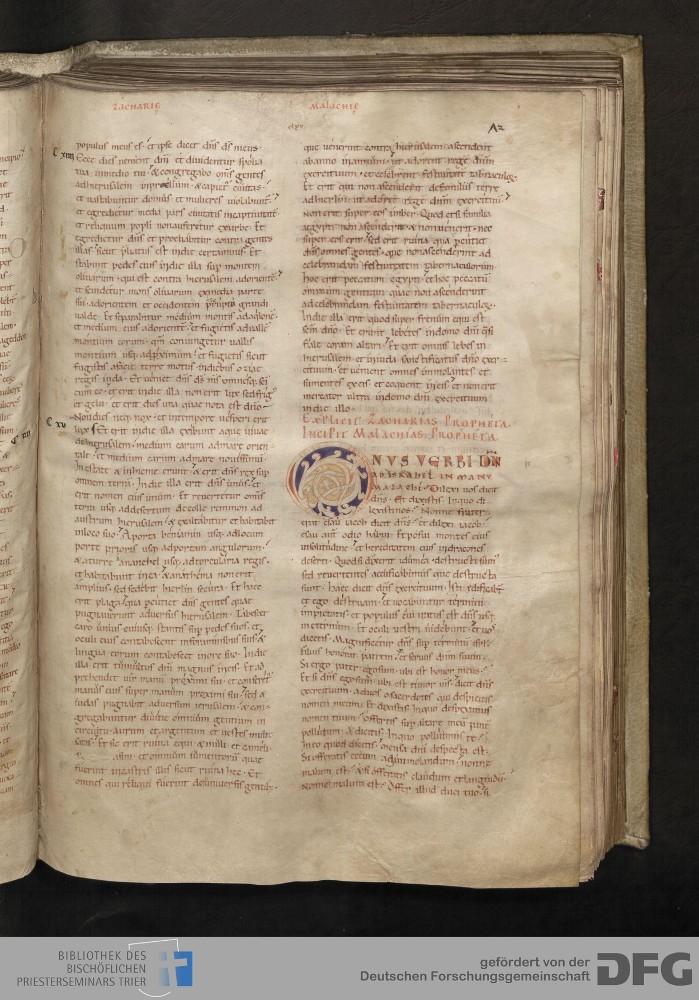 ZACHARIĘ
MALACHIĘ
A2
populus meus es· et ipse dicet dn̄s ds̄ meus·
C xiiii
Ecce dies uenient dn̄i et diuidentur spolia
tua inmedio tui· & congregabo om̄s gentes
adhierusalem inproelium· & capiet ciuitas·
et uastabuntur domus et mulieres uiolabunt·
et egredietur media pars ciuitatis incaptiuitatē·
et reliquum popli non auferetur exurbe· Et
egredietur dn̄s et proeliabitur contra gentes
illas· sicut pliatus est indie certaminis· Et
stabunt pedes eius indie illa sup montem
oliuarum· qui est contra hierusalem adorientē·
et scindetur mons oliuarum exmedia parte
sui· adorientem et occidentem prerupto grandi
ualde· Et separabitur medium montis adaquilonē·
et medium eius adorientē· et fugietis aduallē
montium eorum· qm̄ coniungetur uallis
montium usq; adproximum· et fugietis sicut
fugistis afacie terre motus indiebus oziae
regis iuda· Et ueniet dn̄s ds̄ ms̄ omnesq; sc̄i
cum eo· et erit indie illa non erit lux sed frigus
et gelu· et erit dies una quae nota est dn̄o·
C xv
Non dies neq; nox· et intempore uesperi erit
lux· Et erit indie illa exibunt aquę uiuae
dehierusalem· medium earum admare orien
tale· et medium earum admare nouissimum·
Inestate & inhieme erunt· & erit dn̄s rex sup
omnem terrā· Indie illa erit dn̄s unus· et
erit nomen eius unum· Et reuertetur omīs
terra usq; addesertum· decolle remmon ad
austrum hierusalem· & exaltabitur et habitabit
inloco suo· Aporta beniamin usq; adlocum
porte prioris usq; adportam angulorum·
& aturre ananehel usq; adtorcularia regis·
et habitabunt inea· & anathema non erit
amplius· sed sedebit hierlm̄ secura· Et haec
erit plaga· qua pcutiet dn̄s gentes quae
pugnauerunt aduersus hierusalem· Tabescet
caro unius cuiusq; stantis sup pedes suos· et
oculi eius contabescent inforaminibus suis· &
lingua eorum contabescet inore suo· Indie
illa erit tumultus dn̄i magnus ineis· Et ad
prehendet uir manū proximi sui· et conseret
manus eius super manum proximi sui· sed &
iudas pugnabit aduersum ierusalem· & con
gregabuntur diuitie omnium gentium in
circuitu· aurum et argentum et uestes mul
satis· Et sic erit ruina equi & muli· et cameli·
asini· et omnium iumentorū quae
fuerint incastris illis sicut ruina hec· Et
omnes qui reliqui fuerint deuniuersis gentib·
que uenerint contra hierusalem· ascendent
abanno inannum· ut adorent regē dn̄m
exercituum· et celebrent festiuitatē tabnaculoȝ·
Et erit qui non ascenderit defamiliis terrę
adhierlm̄ ut adoret regē dn̄m exercituū·
Non erit super eos imber· Quod et si familia
aegypti non ascenderit & non uenerit· nec
super eos erit· sed erit ruina qua pcutiet
dn̄s omnes gentes· que non ascenderint ad
celebrandam festiuitatem tabernaculorum·
hoc erit peccatum egypti· et hoc peccatū
omnium gentium quae non ascenderint
adcelebrandam festiuitatem tabernaculoȝ·
Indie illa erit quod super frenum equi est
scm̄ dn̄o· Et erunt lebetes indomo dn̄i q̄si
fiale coram altari· Et erit omnis lebes in
hierusalem et iniuda sc̄ificatus dn̄o exer
cituum· et uenient omnes immolantes et
sumentes exeis et coquent ineis· et non erit
mercator ultra indomo dn̄i exercituum
indie illo·
EXPLICIT ZACHARIAS PROPHETA·
INCIPIT MALACHIAS PROPHETA·
ONVS VERBI DNI
AD ISRAHEL IN MANV
MALACHI· Dilexi uos dicit
dn̄s· Et dixistis· Inquo di
lexisti nos· Nonne frater
erat esau iacob dicit dn̄s· et dilexi iacob·
esau aut̄ odio habui· Et posui montes eius
insolitudinē· et hereditatem eius indracones
deserti· Quod si dixerit idumea· destructi sum
sed reuertentes aedificabimus que destructa
sunt· Haec dicit dn̄s exercituum· Isti edificabt
et ego destruam· et uocabuntur termini
impietatis· et populus cui iratus est dn̄s usq;
inęternum· Et oculi uestri uidebunt· et uos
dicetis· Magnificetur dn̄s sup terminū isrl̄·
Filius honorat patrem· et seruus dnm̄ suum·
Si ergo pater ego sum· ubi est honor meus·
Et si dn̄s ego sum· ubi est timor ms̄· dicit dn̄s
exercituum· aduos o sacerdotes qui despicitis
nomen meum· Et dixistis· Inquo despeximus
nomen tuum· Offertis sup altare meū panē
pollutum· & dicitis· Inquo polluimus te·
Ineo quod dicitis· mensa dn̄i despecta est·
Si offeratis cecum adimmolandum· nonne
malum est· & si offeratis claudum et languidū·
Nonne malum est· Offer illud duci tuo· si
BIBLIOTHEK DES
BISCHÖFLICHEN
PRIESTERSEMINARS TRIER
gefördert von der
Deutschen Forschungsgemeinschaft
DFG